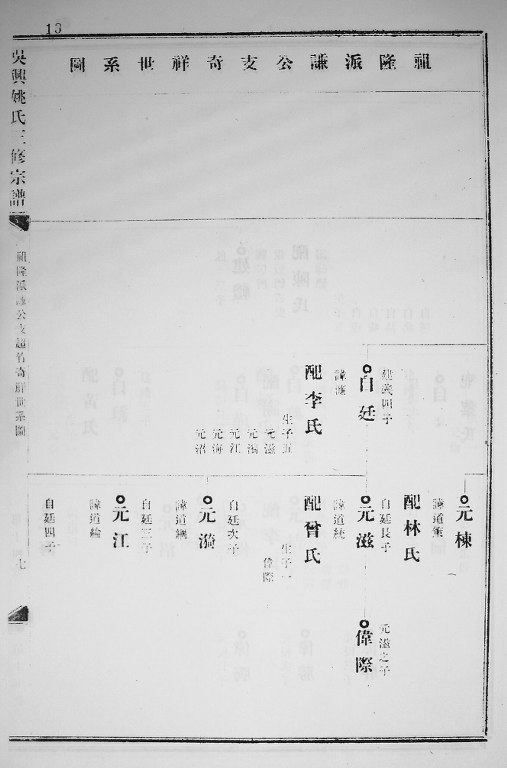 13
祖隆派謙公支奇祥世系圖
吳興姚氏三修宗譜
祖隆派謙公支趙竹奇祥世系圖
七
白廷
建義四子
諱瀍
配李氏
生子五
元滋
元漪
元江
元海
元沼
元棟
諱道策
配林氏
元滋
自廷長子
諱道統
配曾氏
生子一
偉際
元漪
自廷次子
諱道綱
元江
自廷三子
諱道綸
自廷四子
偉際
元滋之子